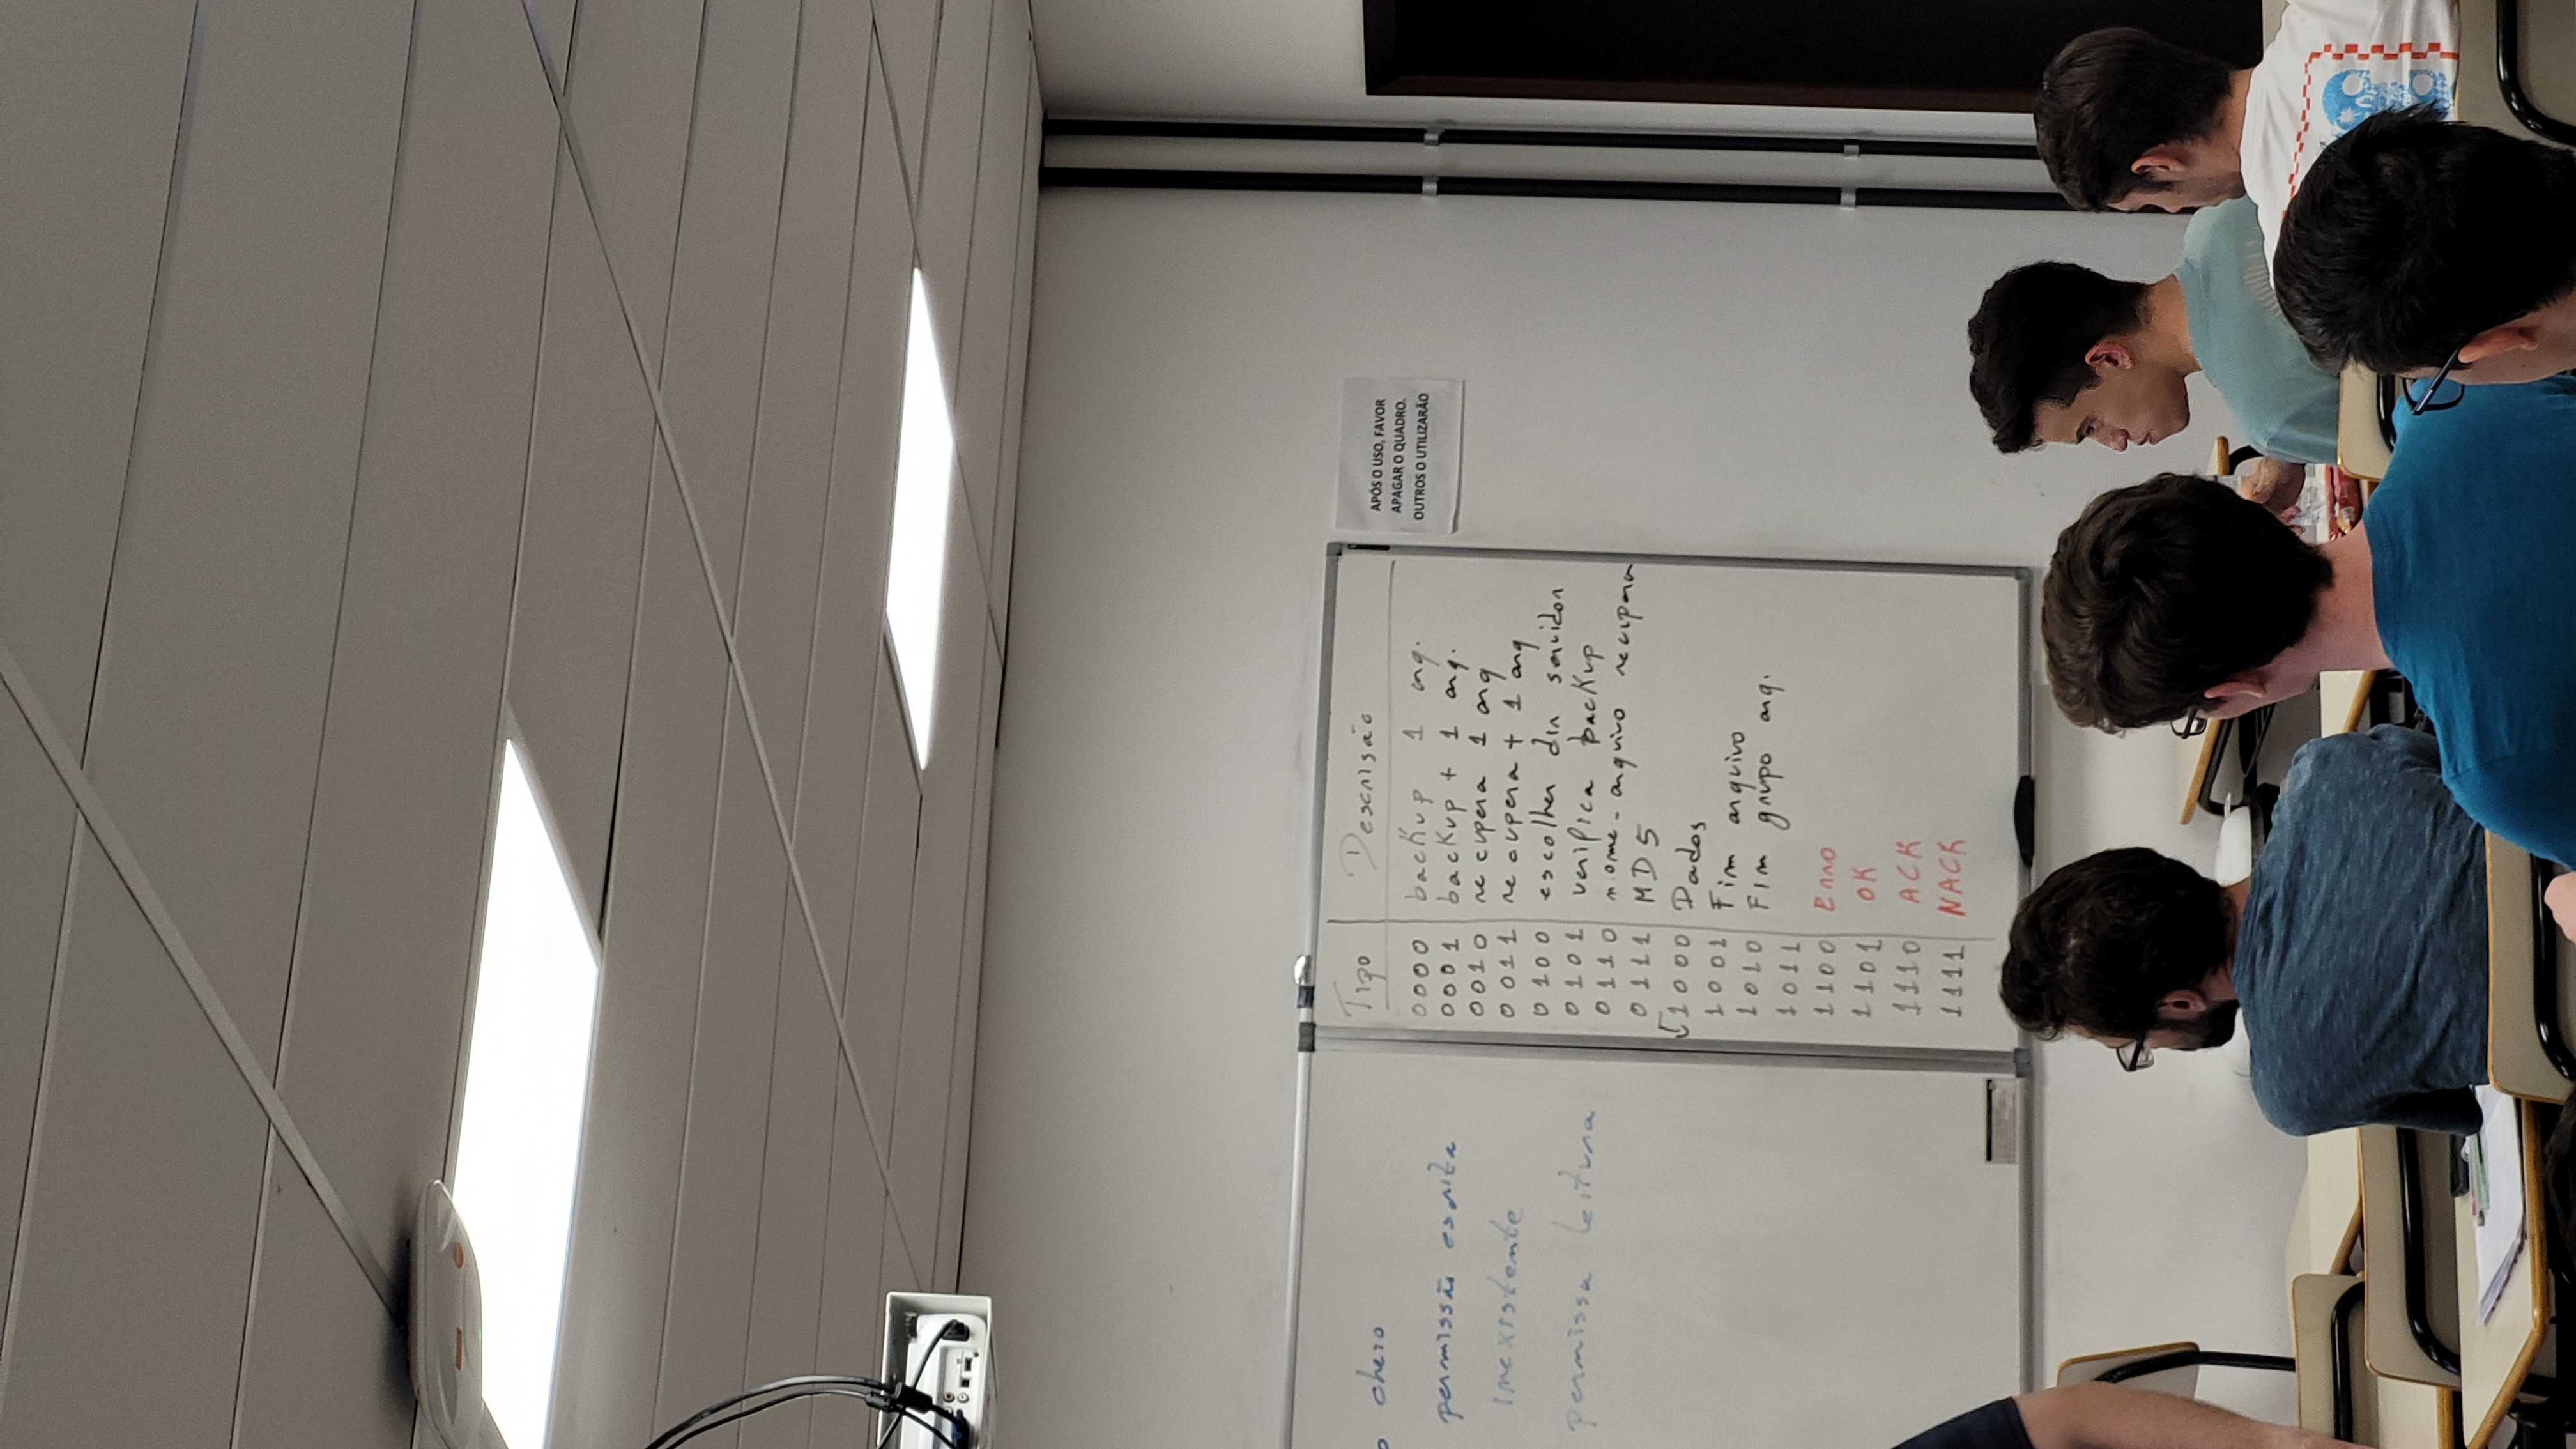 cheio
permissão escrita
inexistente
permissa leitura
Tipo Descrisão
0000 backup 1 arq.
0001 backup + 1 arq.
0010 recupera 1 arq
0011 recupera + 1 arq
0100 escolher dir servidor
0101 verifica backup
0110 nome-arquivo recupera
0111 MD5
1000 Dados
1001 Fim arquivo
1010 Fim grupo arq.
1011
1100 Erro
1101 OK
1110 ACK
1111 NACK
APÓS O USO, FAVOR
APAGAR O QUADRO.
OUTROS O UTILIZARÃO